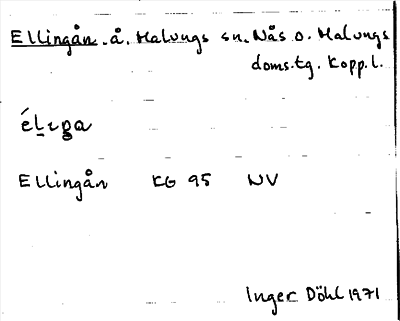 Ellingån. å. Malungs sn. Nås o. Malungs
doms.tg. Kopp. l.
Ellingån KG 95 NV
Inger Döhl 1971